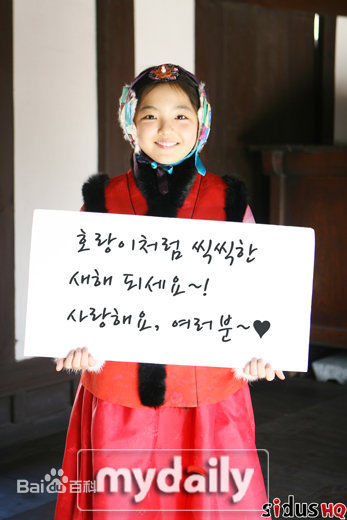 호랑이처럼 씩씩한
새해 되세요~!
사랑해요, 여러분~♥
Bai百科
mydaily
sidusHQ